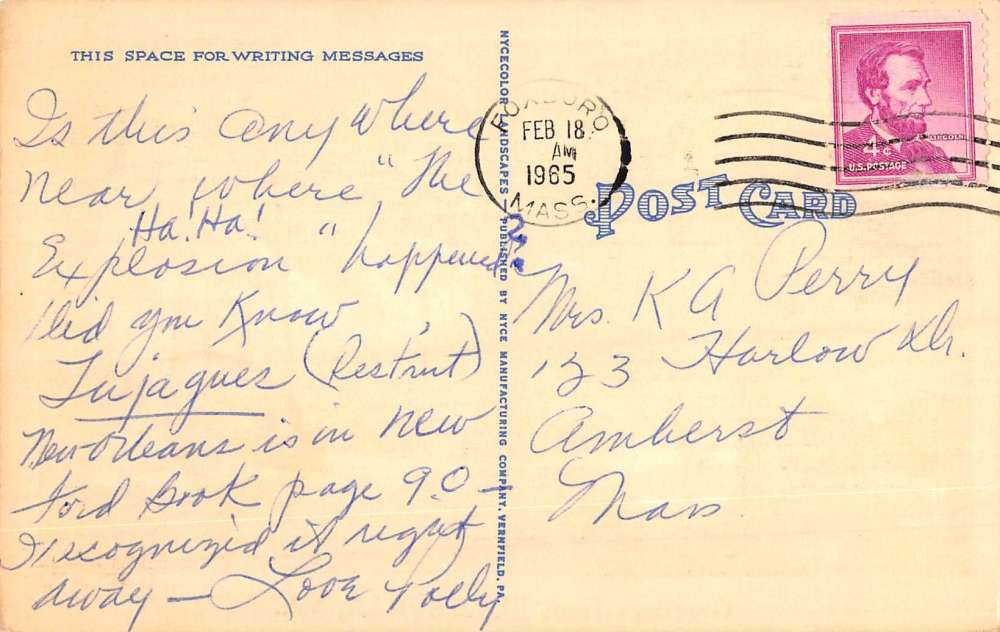 THIS SPACE FOR WRITING MESSAGES
Is this any Where
near where "The
Ha! Ha!
Explosion " happened
Did you Know
Tujagues (Restrnt)
New Orleans is in new
Ford Book page 90 —
I recognized it right
away — Love Polly
NYCECOLOR LANDSCAPES — PUBLISHED BY NYCE MANUFACTURING COMPANY, VERNFIELD, PA.
FOXBORO
FEB 18
AM
1965
MASS.
LINCOLN
4¢
U.S. POSTAGE
POST CARD
Mrs. K A Perry
123 Harlow Dr.
Amherst
Mass